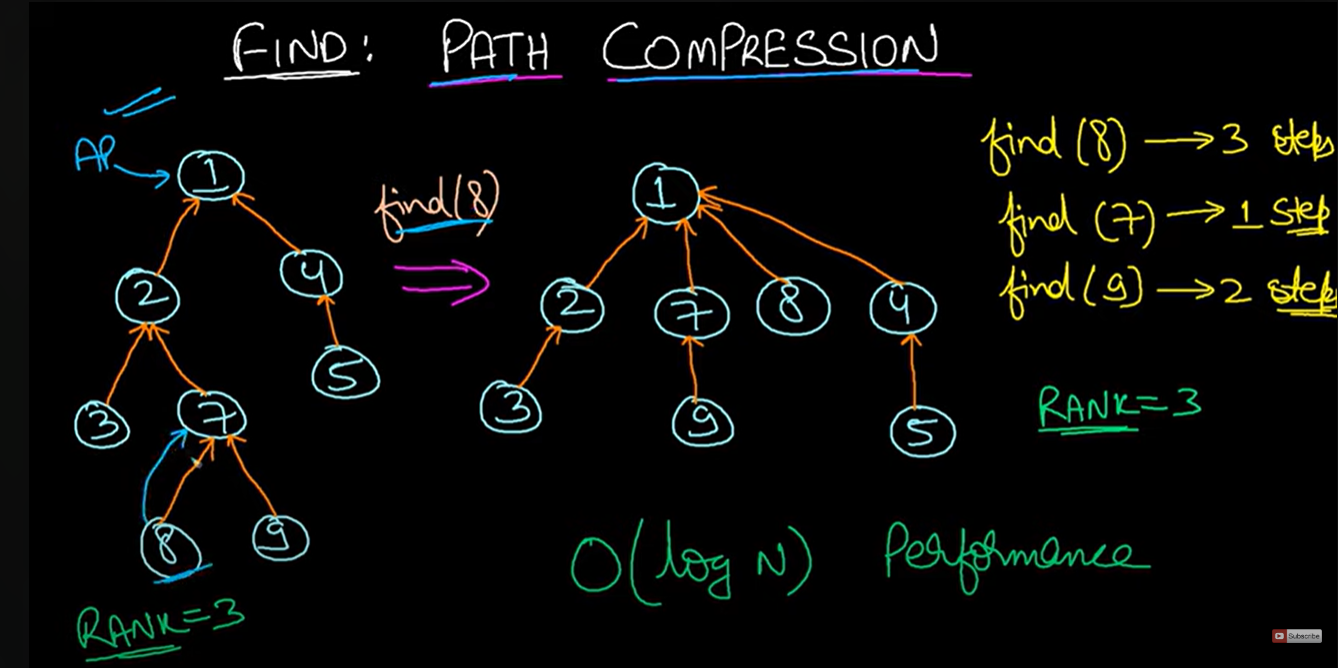 FIND: PATH COMPRESSION
AP
1
2
4
3
7
5
8
9
RANK=3
find(8)
1
2
7
8
4
3
9
5
find (8) → 3 steps
find (7) → 1 step
find (9) → 2 steps
RANK=3
O(log N) Performance
Subscribe